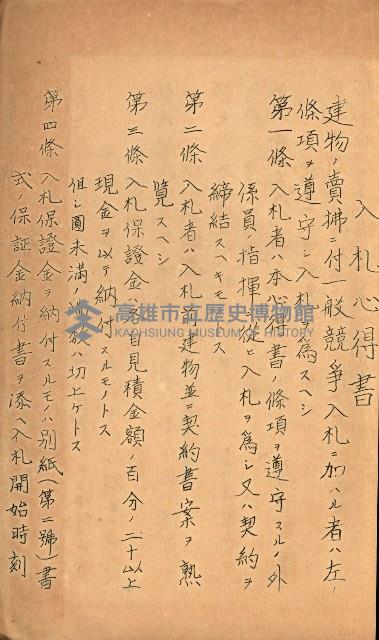 入札心得書
建物ノ賣拂ニ付一般競爭入札ニ加ハル者ハ左ノ
條項ヲ遵守シ入札ヲ爲スヘシ
第一條 入札者ハ本心得書ノ條項ヲ遵守スルノ外
係員ノ指揮ニ從ヒ入札ヲ爲シ又ハ契約ヲ
締結スヘキモノトス
第二條 入札者ハ入札前建物並ニ契約書案ヲ熟
覽スヘシ
第三條 入札保證金ハ各自見積金額ノ百分ノ二十以上
現金ヲ以テ納付スルモノトス
但シ圓未滿ノ端数ハ切上ケトス
第四條 入札保證金ヲ納付スルモノハ別紙(第二號)書
式ノ保証金納付書ヲ添ヘ入札開始時刻
高雄市立歷史博物館
KAOHSIUNG MUSEUM OF HISTORY